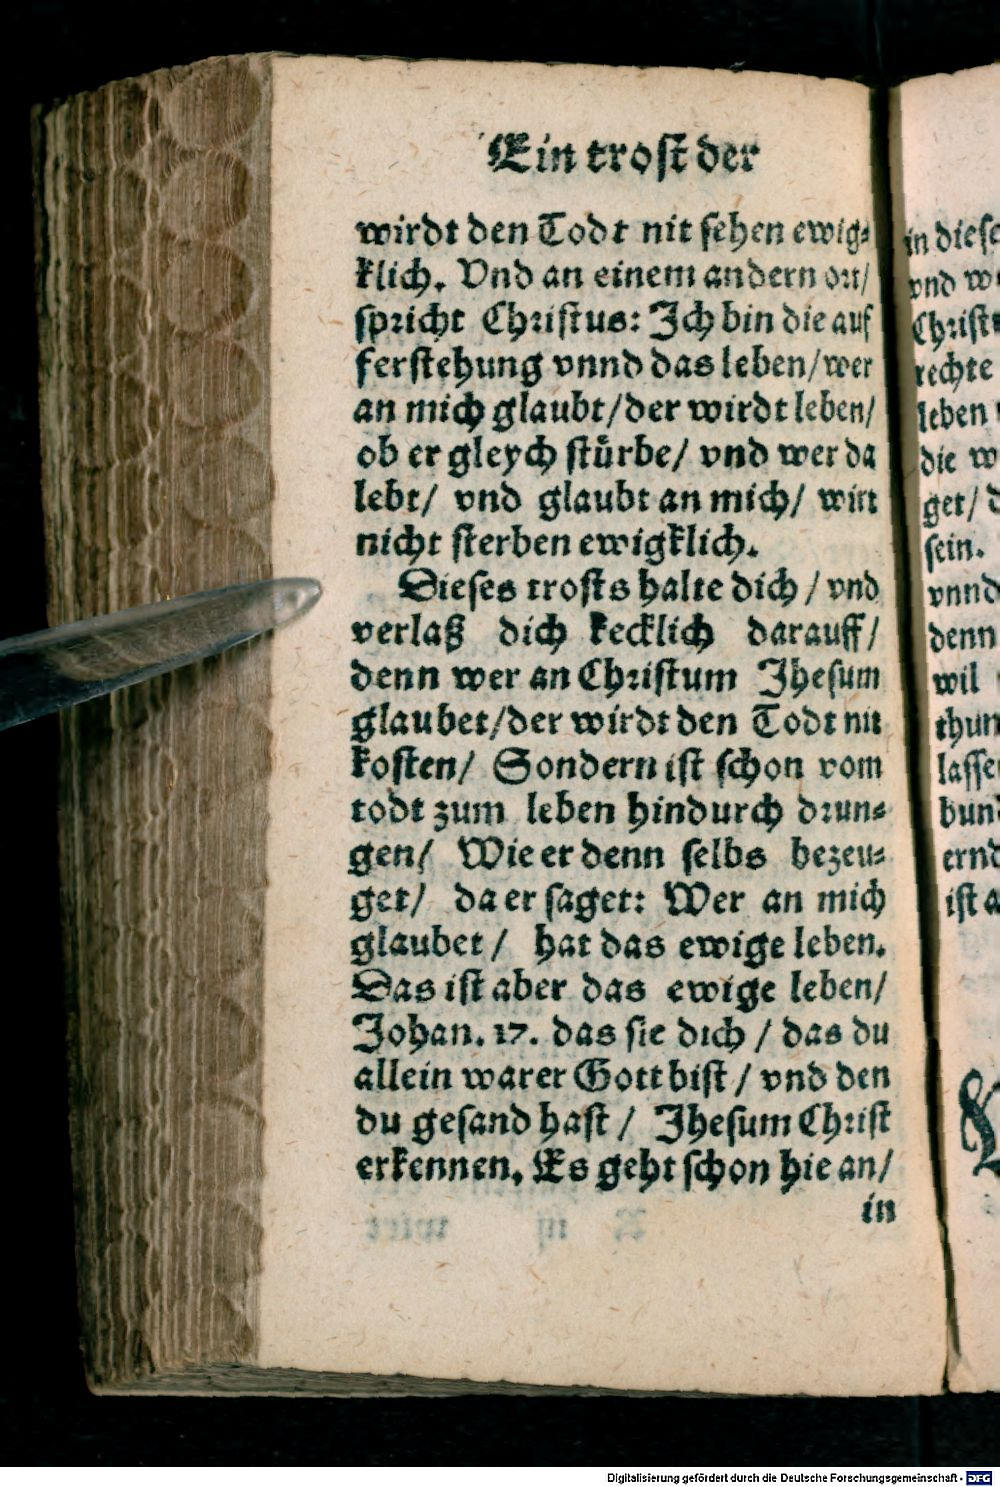 Ein trost der
wirdt den Todt nit sehen ewig-
klich. Vnd an einem andern ort/
spricht Christus: Jch bin die auf
ferstehung vnnd das leben/wer
an mich glaubt/der wirdt leben/
ob er gleych stürbe/ vnd wer da
lebt/ vnd glaubt an mich/ wirt
nicht sterben ewigklich.
Dieses trosts halte dich / vnd
verlaß dich kecklich darauff/
denn wer an Christum Jhesum
glaubet/der wirdt den Todt nit
kosten/ Sondern ist schon vom
todt zum leben hindurch drun-
gen/ Wie er denn selbs bezeu-
get/ da er saget: Wer an mich
glaubet / hat das ewige leben.
Das ist aber das ewige leben/
Johan. 17. das sie dich / das du
allein warer Gott bist / vnd den
du gesand hast / Jhesum Christ
erkennen. Es geht schon hie an/
in
in diese
vnd
Christ
rechte
leben
die
get/
sein.
vnnd
denn
wil
thun
lasse
bun
ernd
ist a
Digitalisierung gefördert durch die Deutsche Forschungsgemeinschaft - DFG